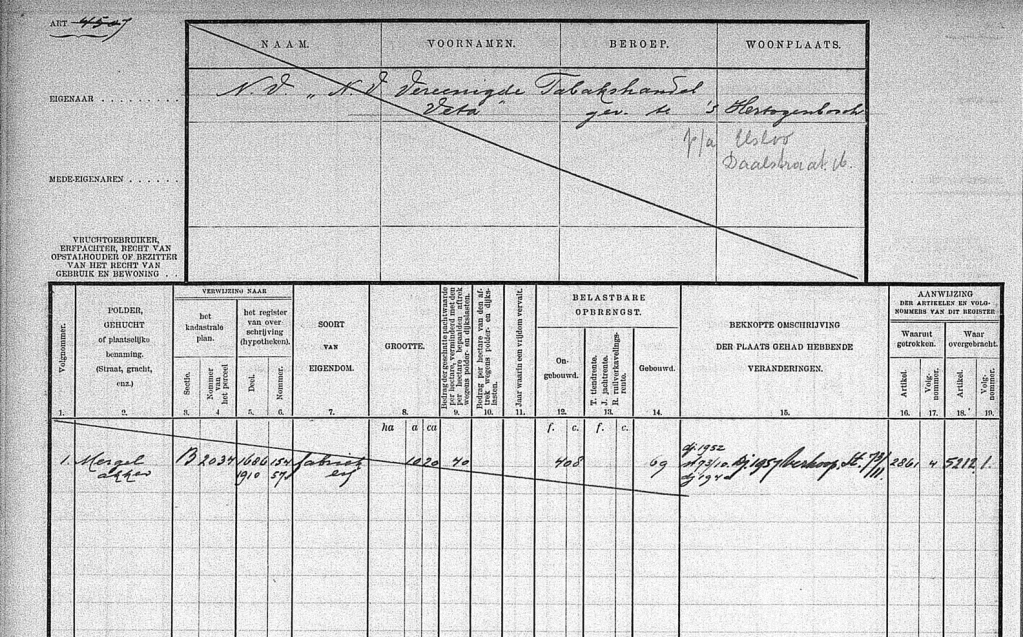 ART. 4507
NAAM. VOORNAMEN. BEROEP. WOONPLAATS.
EIGENAAR . . . . . . . .
N.V. „N.V. Vereenigde Tabakshandel
Veta" gev. te 's Hertogenbosch
p/a Elsloo
Daalstraat 16.
MEDE-EIGENAREN . . . . . .
VRUCHTGEBRUIKER,
ERFPACHTER, RECHT VAN
OPSTALHOUDER OF BEZITTER
VAN HET RECHT VAN
GEBRUIK EN BEWONING . .
Volgnommer.
1.
POLDER,
GEHUCHT
of plaatselijke
benaming.
(Straat, gracht,
enz.)
2.
VERWIJZING NAAR
het
kadastrale
plan.
Sectie.
3.
Nommer
van
het perceel
4
het register
van over
schrijving
(hypotheken).
Deel.
5.
Nommer.
6.
SOORT
VAN
EIGENDOM.
7.
GROOTTE.
8.
Bedrag der geschatte pachtwaarde
per hectare, verminderd met den
per hectare bepaalden aftrek
wegens polder- en dijkslasten.
9.
Bedrag per hectare van den af-
trek wegens polder- en dijks-
lasten.
10.
Jaar waarin een vrijdom vervalt.
11.
BELASTBARE
OPBRENGST.
On-
gebouwd.
12.
T. tiendrente.
J. jachtrente.
R. ruilverkavelings-
rente.
13.
Gebouwd.
14.
BEKNOPTE OMSCHRIJVING
DER PLAATS GEHAD HEBBENDE
VERANDERINGEN.
15.
AANWIJZING
DER ARTIKELEN EN VOLG-
NOMMERS VAN DIT REGISTER
Waaruit
getrokken.
Artikel.
16.
Volg-
nommer.
17.
Waar
overgebracht.
Artikel.
18.
Volg-
nommer.
19.
ha a ca f. c. f. c.
dj. 1952
1. Mergel B 2034 1686 154 fabriek 10 20 40 408 69 st 73/10. Dj. 1957 verkoop. St. 73/11. 2261 4 5212 1.
akker 1910 57 erf dj 194